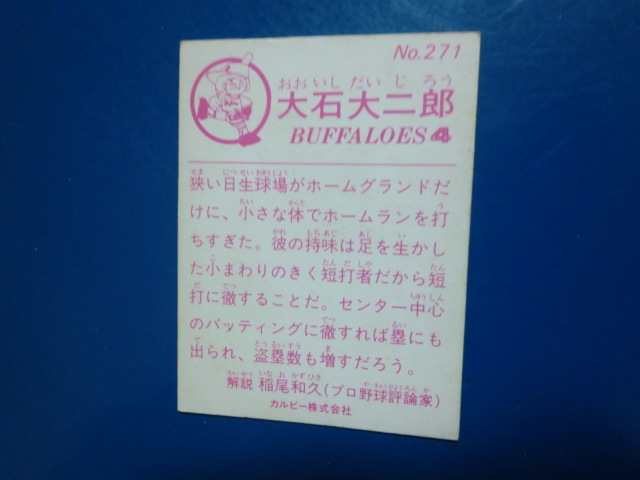 No.271
おおいしだいじろう
大石大二郎
BUFFALOES 4
狭い日生球場がホームグランドだ
けに、小さな体でホームランを打
ちすぎた。彼の持味は足を生かし
た小まわりのきく短打者だから短
打に徹することだ。センター中心
のバッティングに徹すれば塁にも
出られ、盗塁数も増すだろう。
解説 稲尾和久(プロ野球評論家)
カルビー株式会社